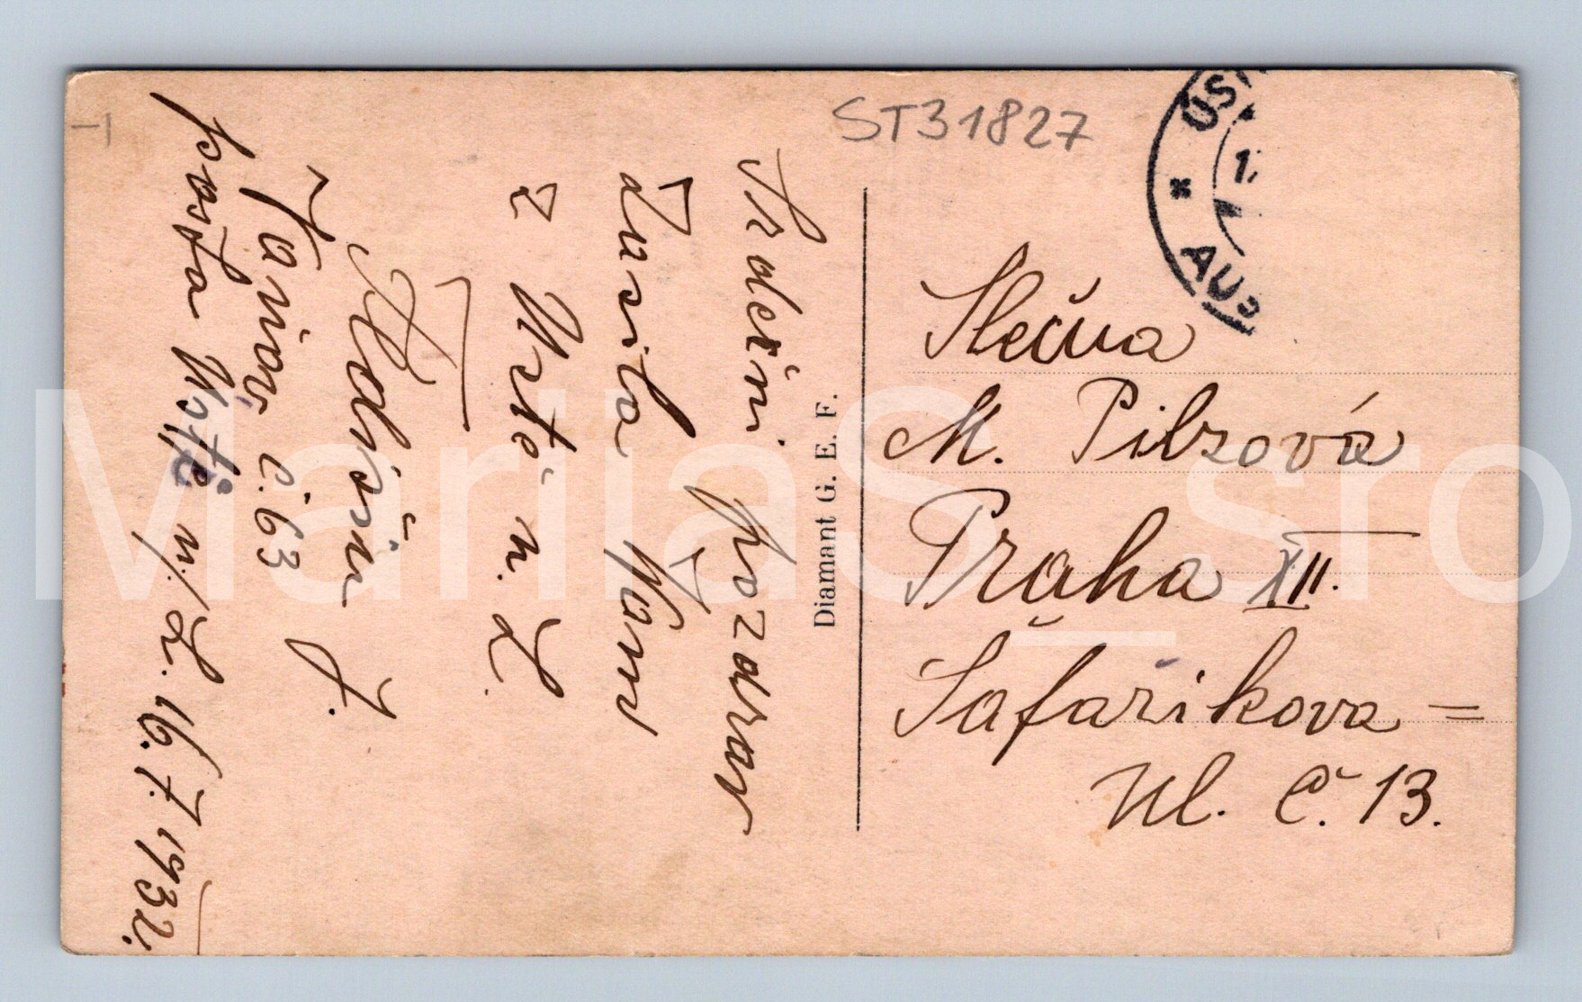 ST31827
Srdečný pozdrav
zasílá Vám
z Ústí n. L.
J.
č. 63
pošta Ústí n/L. 16.7.1932.
Diamant G. E. F.
Slečna
M. Pilzová
Praha XII.
Šafaříkova =
ul. č. 13.
MariiaS_sro